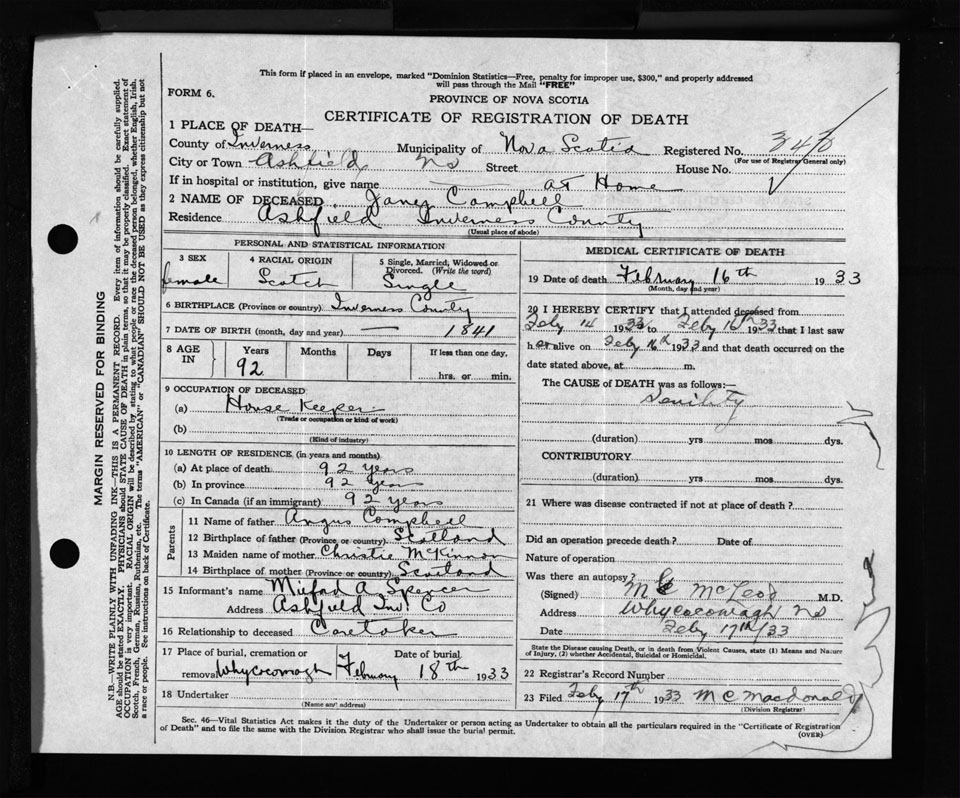 This form if placed in an envelope, marked "Dominion Statistics—Free, penalty for improper use, $300," and properly addressed
will pass through the Mail "FREE"
FORM 6.
PROVINCE OF NOVA SCOTIA
CERTIFICATE OF REGISTRATION OF DEATH
1 PLACE OF DEATH—
County of Inverness Municipality of Nova Scotia Registered No.
(For use of Registrar General only)
City or Town Ashfield NS Street House No.
If in hospital or institution, give name at Home
2 NAME OF DECEASED Janey Campbell
Residence Ashfield Inverness County
(Usual place of abode)
PERSONAL AND STATISTICAL INFORMATION
3 SEX 4 RACIAL ORIGIN 5 Single, Married, Widowed or Divorced. (Write the word)
female Scotch Single
6 BIRTHPLACE (Province or country) Inverness County
7 DATE OF BIRTH (month, day and year) — 1841
8 AGE IN Years Months Days If less than one day.
92 hrs. or min.
9 OCCUPATION OF DECEASED
(a) House Keeper
(Trade or occupation or kind of work)
(b)
(Kind of industry)
10 LENGTH OF RESIDENCE (in years and months)
(a) At place of death 92 years
(b) In province 92 years
(c) In Canada (if an immigrant) 92 years
Parents
11 Name of father Angus Campbell
12 Birthplace of father (Province or country) Scotland
13 Maiden name of mother Christie McKinnon
14 Birthplace of mother (Province or country) Scotland
15 Informant's name A Spencer
Address Ashfield Inv. Co
16 Relationship to deceased Caretaker
17 Place of burial, cremation or removal Date of burial
Whycocomagh February 18th 1933
18 Undertaker
(Name and address)
MEDICAL CERTIFICATE OF DEATH
19 Date of death February 16th 1933
(Month, day and year)
20 I HEREBY CERTIFY that I attended deceased from
Feby 14 1933 to Feby 16th 1933 that I last saw
her alive on Feby 16th 1933 and that death occurred on the
date stated above, at m.
The CAUSE of DEATH was as follows:—
Senility
(duration) yrs mos dys.
CONTRIBUTORY
(duration) yrs mos dys.
21 Where was disease contracted if not at place of death?
Did an operation precede death? Date of
Nature of operation
Was there an autopsy?
(Signed) McLeod M.D.
Address Whycocomagh NS
Date Feby 17th/33
State the Disease causing Death, or in death from Violent Causes, state (1) Means and Nature
of Injury, (2) whether Accidental, Suicidal or Homicidal.
22 Registrar's Record Number
23 Filed Feby 17th 1933 M C Macdonald
(Division Registrar)
Sec. 46—Vital Statistics Act makes it the duty of the Undertaker or person acting as Undertaker to obtain all the particulars required in the "Certificate of Registration
of Death" and to file the same with the Division Registrar who shall issue the burial permit.
(OVER)
MARGIN RESERVED FOR BINDING
N.B.—WRITE PLAINLY WITH UNFADING INK—THIS IS A PERMANENT RECORD. Every item of information should be carefully supplied.
AGE should be stated EXACTLY. PHYSICIANS should STATE CAUSE OF DEATH in plain terms, so that it may be properly classified. Exact statement of
OCCUPATION is very important. RACIAL ORIGIN will be described by stating to what people or race the deceased person belonged, whether English, Irish,
Scotch, French, German, Russian, Ruthenian, etc. The terms "AMERICAN" or "CANADIAN" SHOULD NOT BE USED as they express citizenship but not
a race or people. See instructions on back of Certificate.